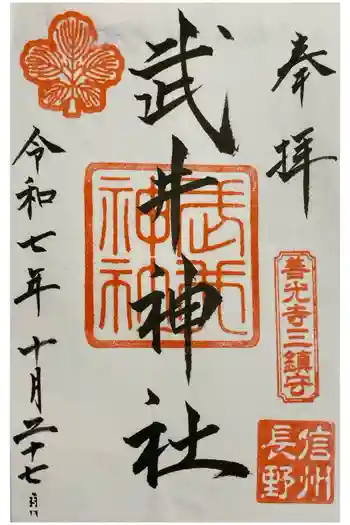 奉拝
善光寺三鎮守
信州
長野
武井神社
武井
神社
令和七年十月二十七日